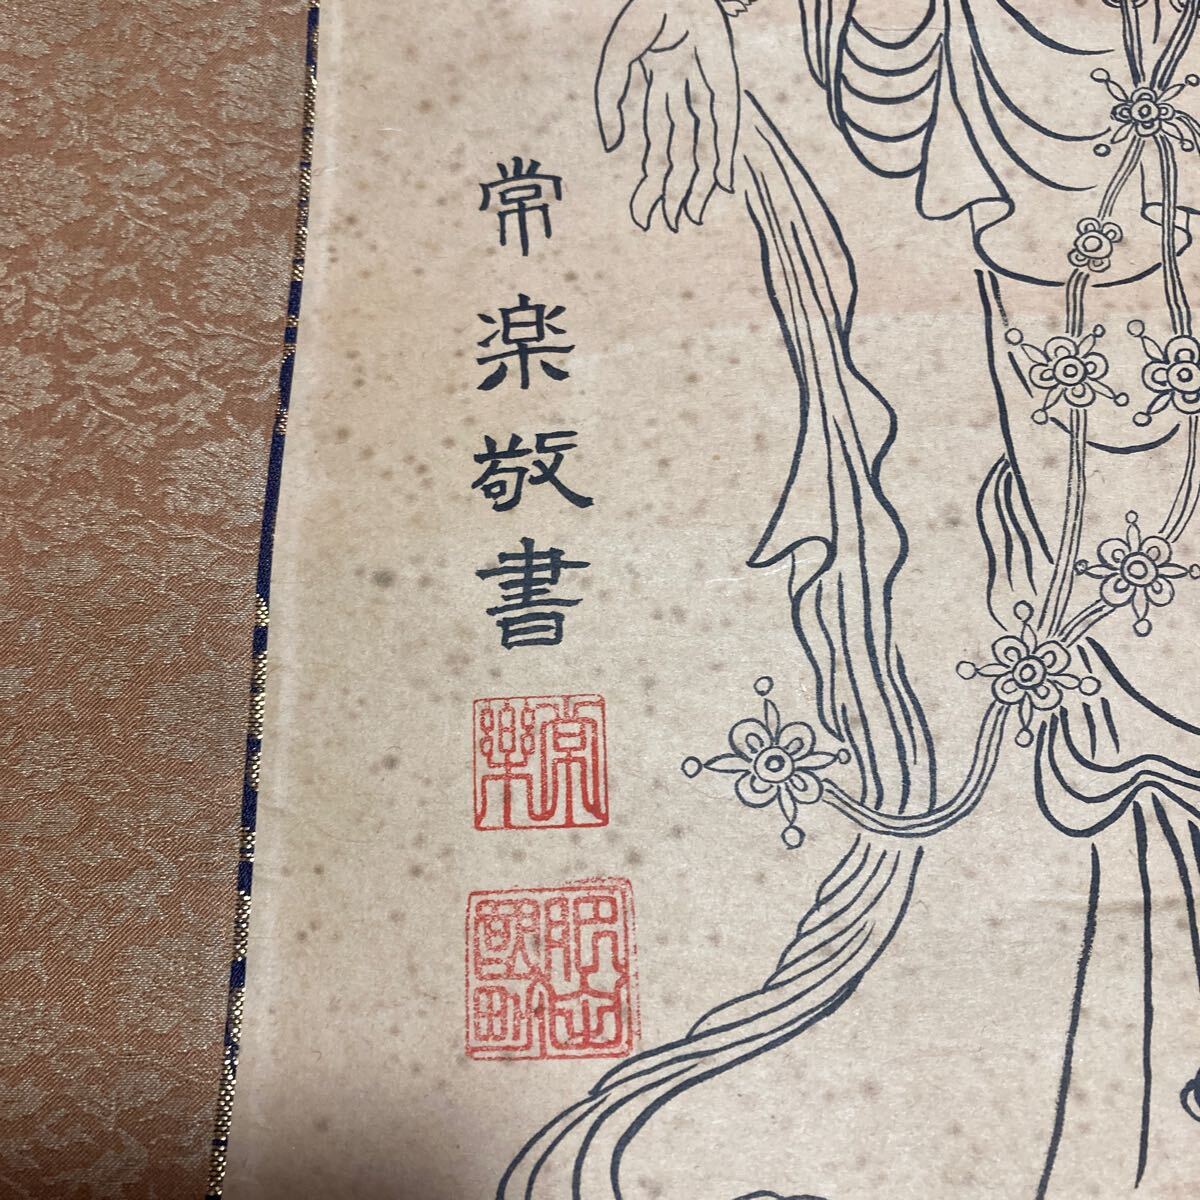 常楽敬書
常樂